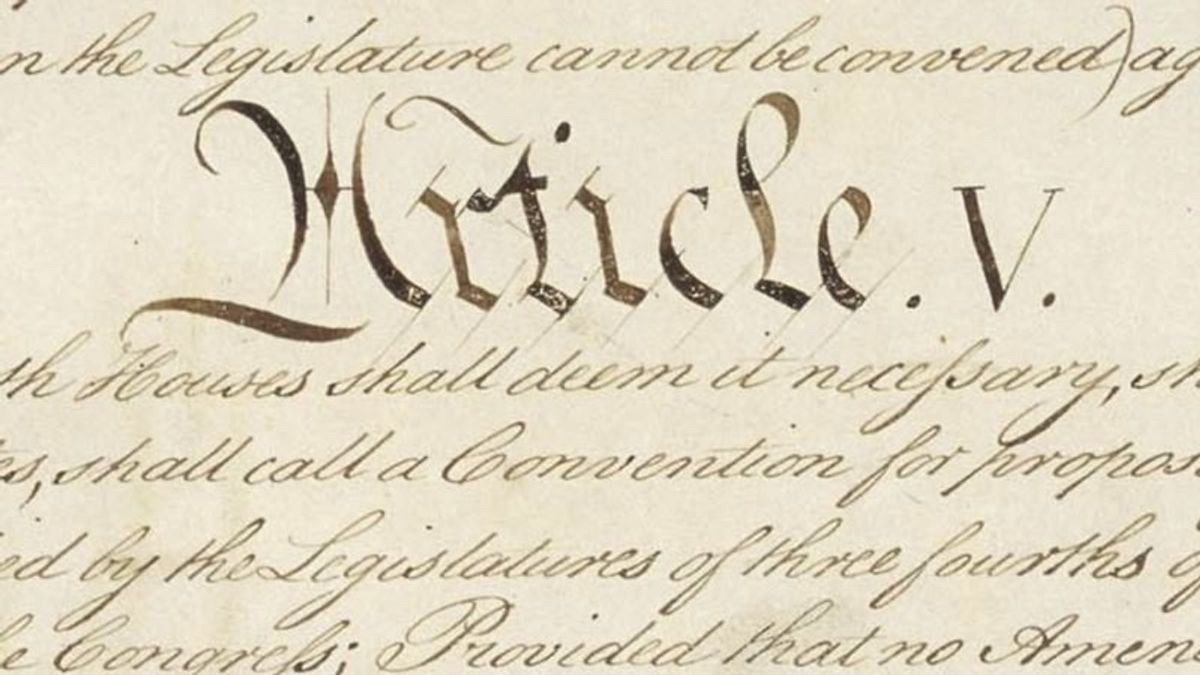 n the Legislature cannot be convened) ag
Article. V.
th Houses shall deem it neceſsary, sh
es, shall call a Convention for propos
ed by the Legislatures of three fourths o
e Congreſs; Provided that no Amen